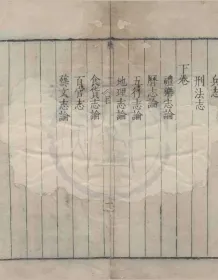 兵志
刑法志
下卷
禮樂志論
曆志論
五行志論
地理志論
食貨志論
百官志
藝文志論